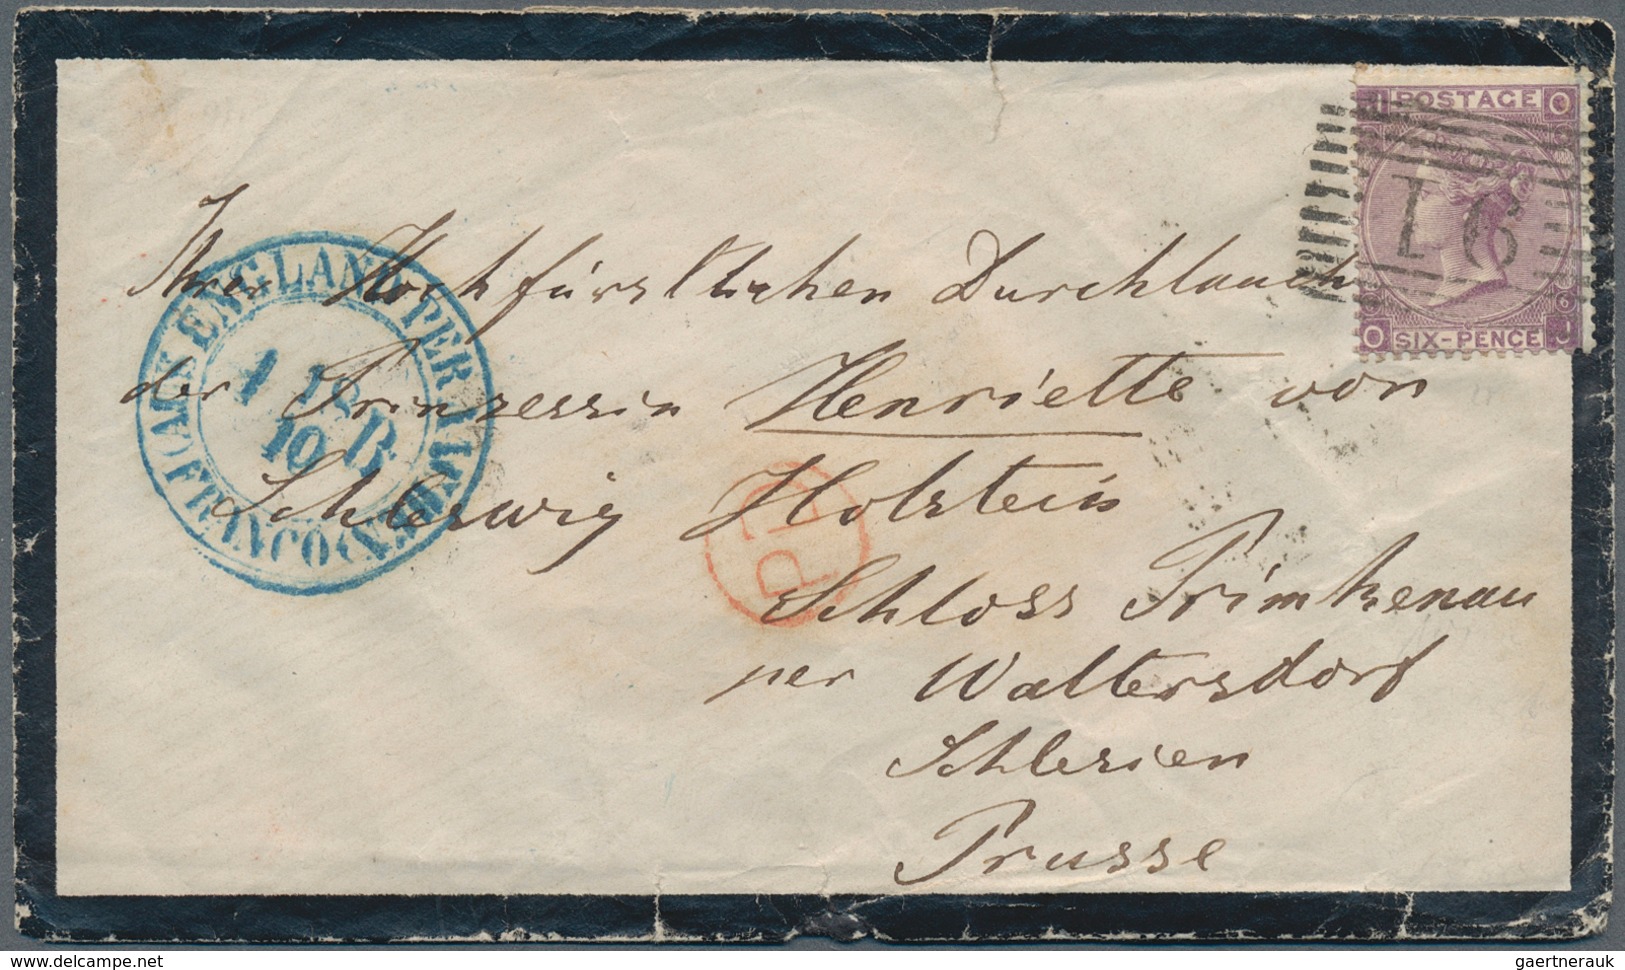 POSTAGE
SIX-PENCE
O
J
6
Ihrer Hochfürstlichen Durchlaucht
der Prinzessin Henriette von
Schleswig Holstein
Schloss Primkenau
per Waltersdorf
Schlesien
Prusse
ENGLAND PER
FRANCO
10
PD
delcampe.net
gaertnerauk